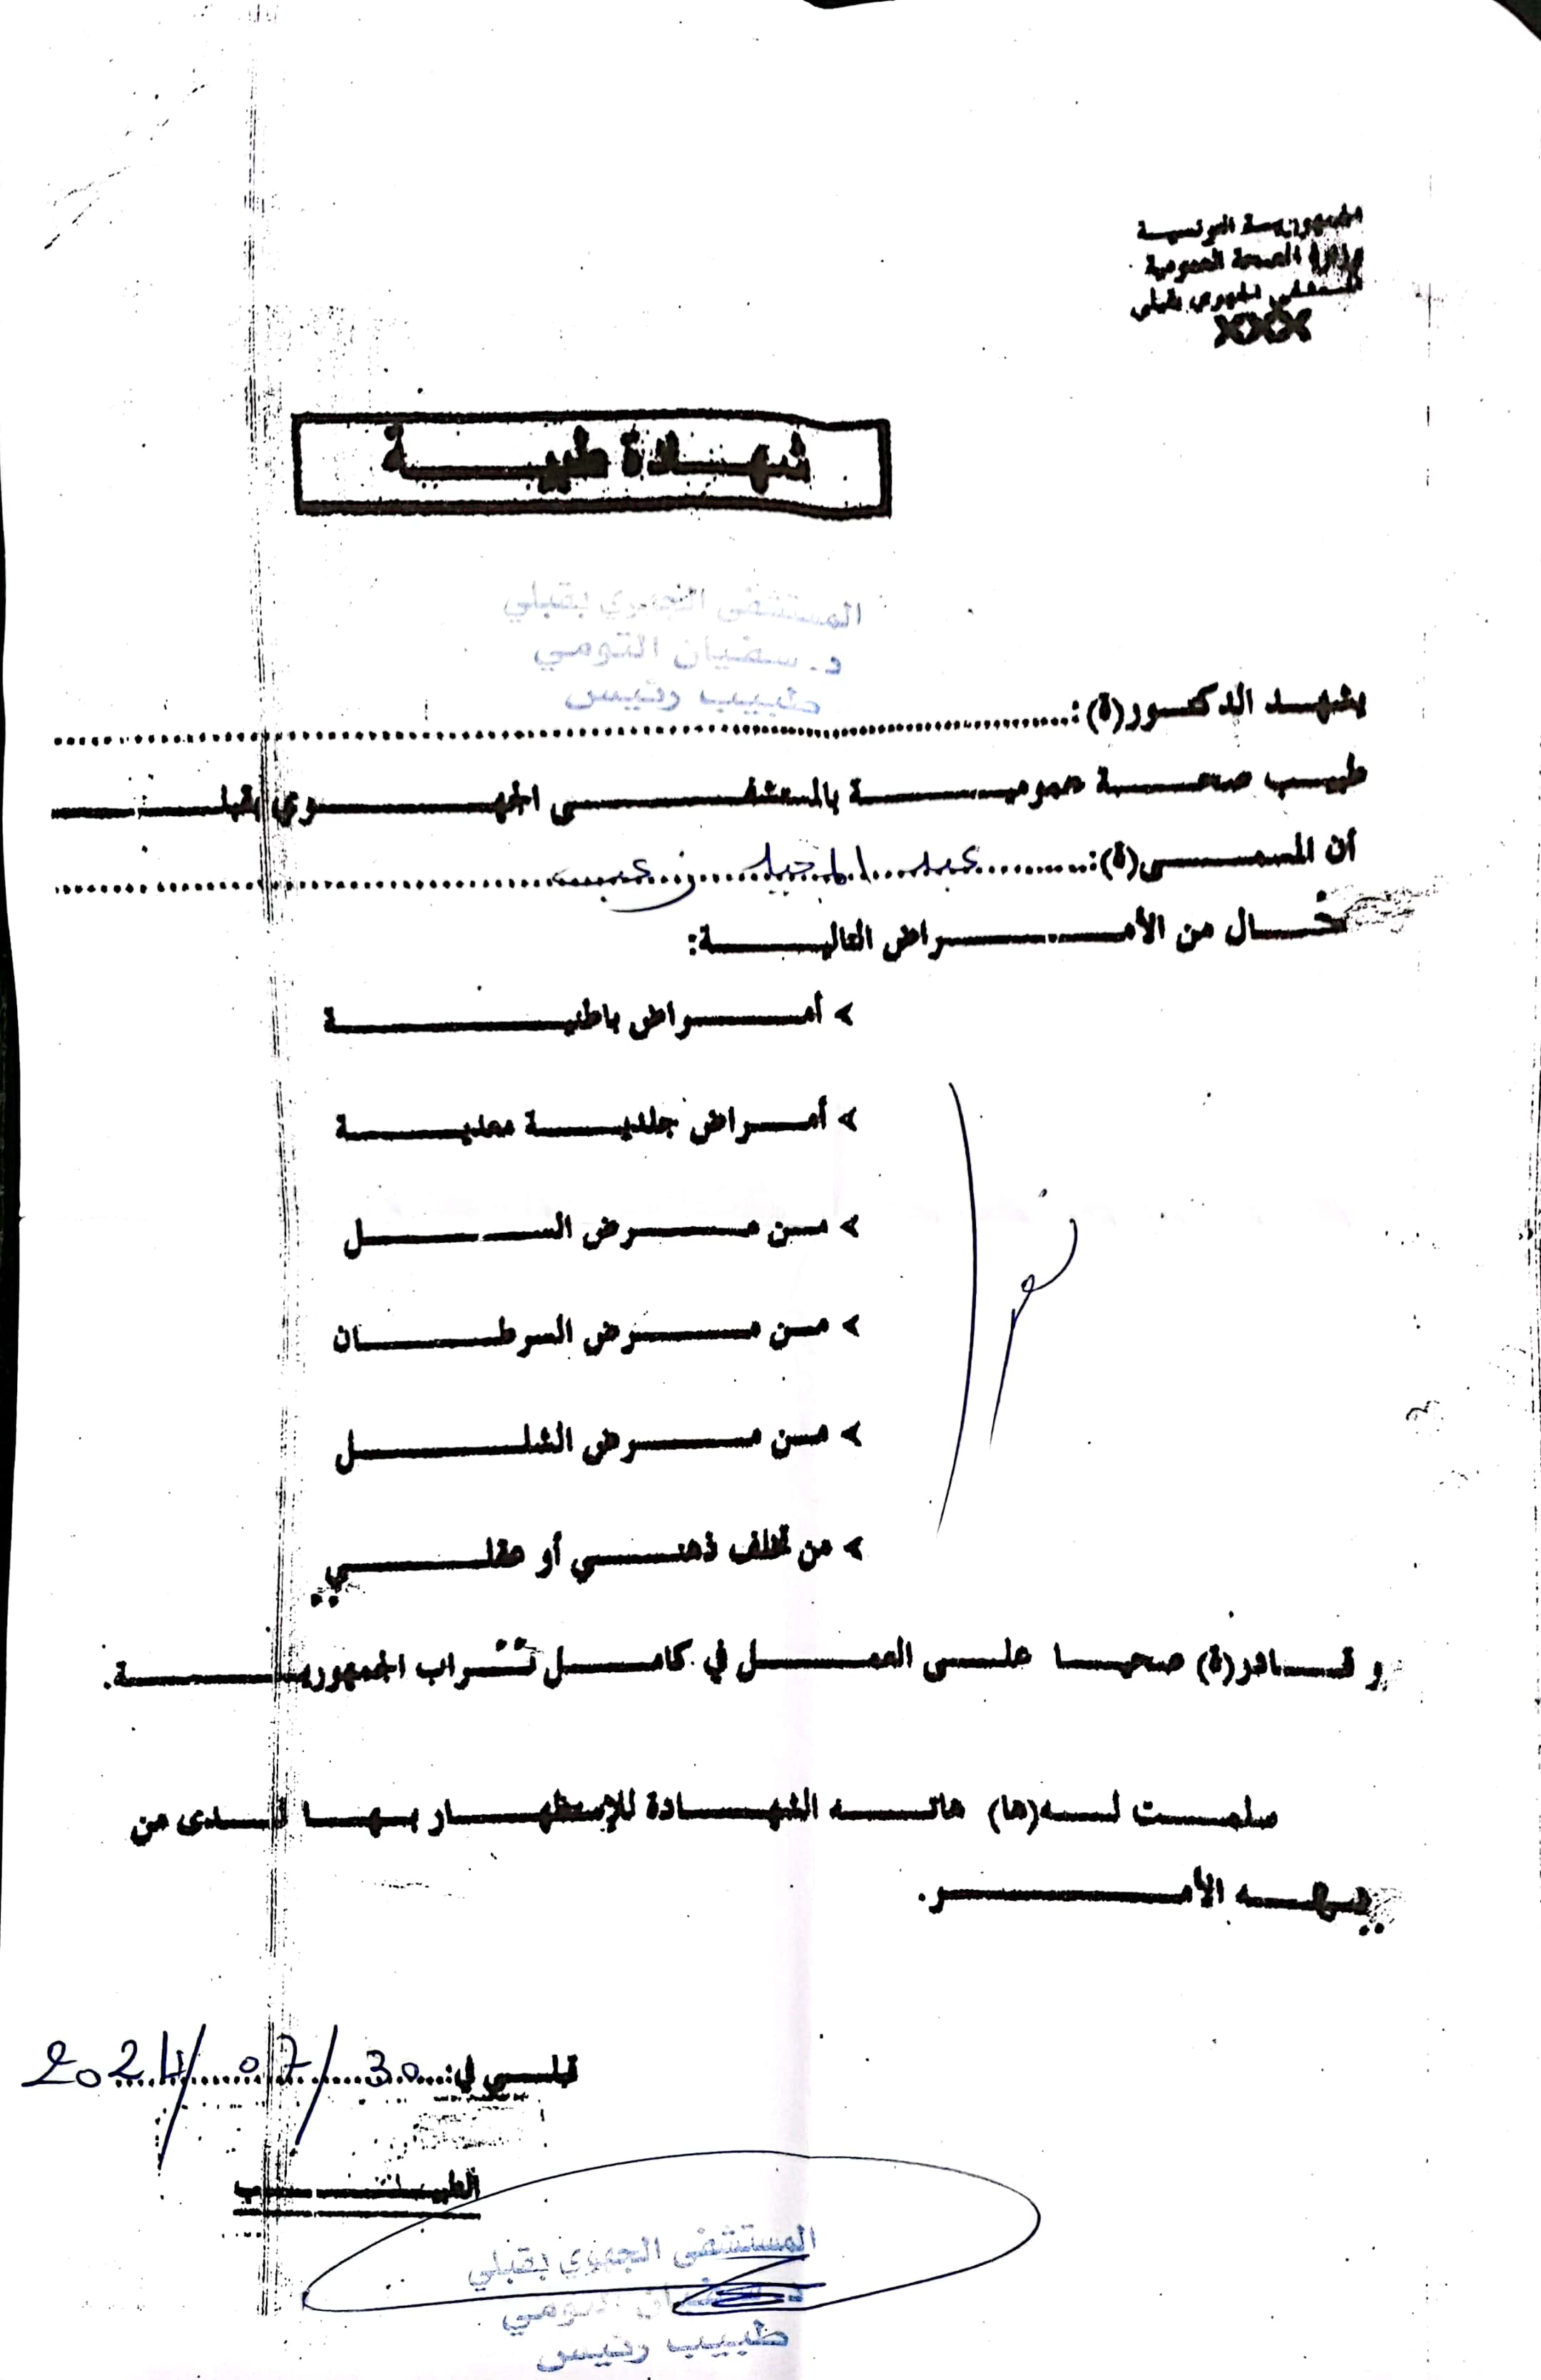 الجمهورية التونسية
وزارة الصحة العمومية
المستشفى الجهوي بقبلي
XXX
شهادة طبية
المستشفى الجهوي بقبلي
د. سفيان التومي
طبيب رئيس
يشهد الدكتور(ة):
طبيب صحة عمومية بالمستشفى الجهوي بقبلي
أن المسمى(ة): عبد المجيد زعيب
خال من الأمراض التالية:
> أمراض باطنية
> أمراض جلدية معدية
> من مرض السل
> من مرض السرطان
> من مرض الشلل
> من تخلف ذهني أو عقلي
و قادر(ة) صحيا على العمل في كامل تراب الجمهورية.
سلمت له(ها) هاته الشهادة للإستظهار بها لدى من
يهمه الأمر.
قبلي في: 30/07/2024
الطبيب
المستشفى الجهوي بقبلي
د. سفيان التومي
طبيب رئيس